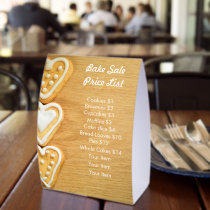 Bake Sale
Price List
Cookies $3
Brownies $2
Cupcakes $3
Muffins $2
Cake Pies $4
Bread Loaves $10
Pies $15
Whole Cakes $14
Your Item
Your Item
Your Item